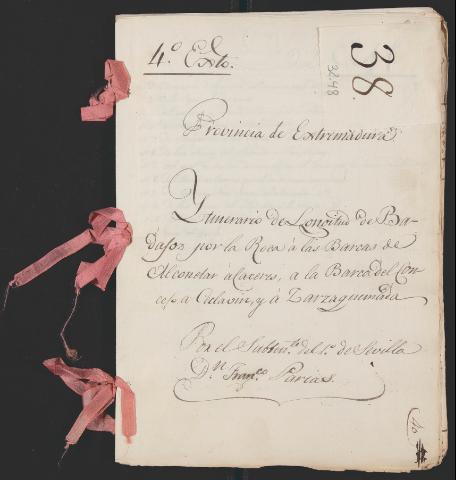 4.º Exto.
38
3248
Provincia de Extremadura
Ytinerario de Longitud de Ba-
dajoz por la Roca á las Barcas de
Alconetar á Caceres, a la Barca del Con-
cejo, a Ceclavin, y á Zarzaquemada
Por el Subten.te del 1.º de Sevilla
D.n Fran.co Parias.